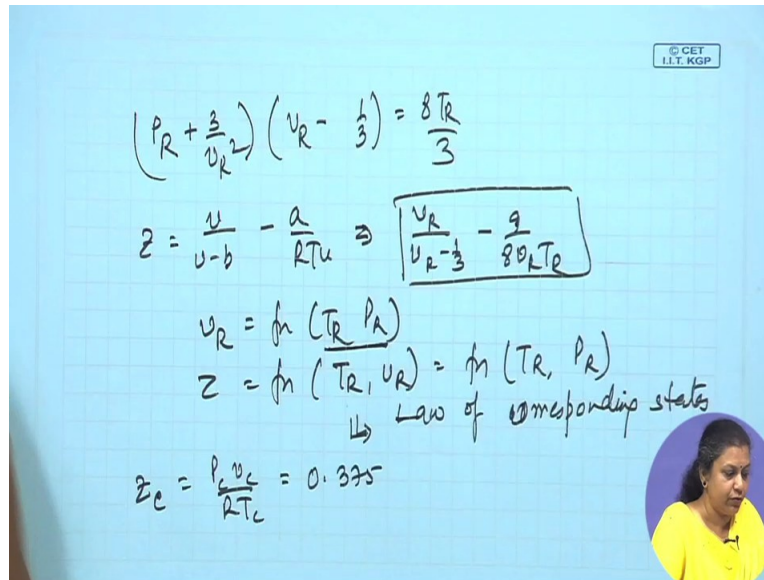 © CET
I.I.T. KGP
(P_R + 3/v_R²) (v_R - 1/3) = 8T_R/3
Z = v/(v-b) - a/(RTv) ⇒ v_R/(v_R - 1/3) - 9/(8v_R T_R)
v_R = fn (T_R P_R)
Z = fn (T_R, v_R) = fn (T_R, P_R)
↳ Law of corresponding states
Z_c = P_c v_c/(RT_c) = 0.375